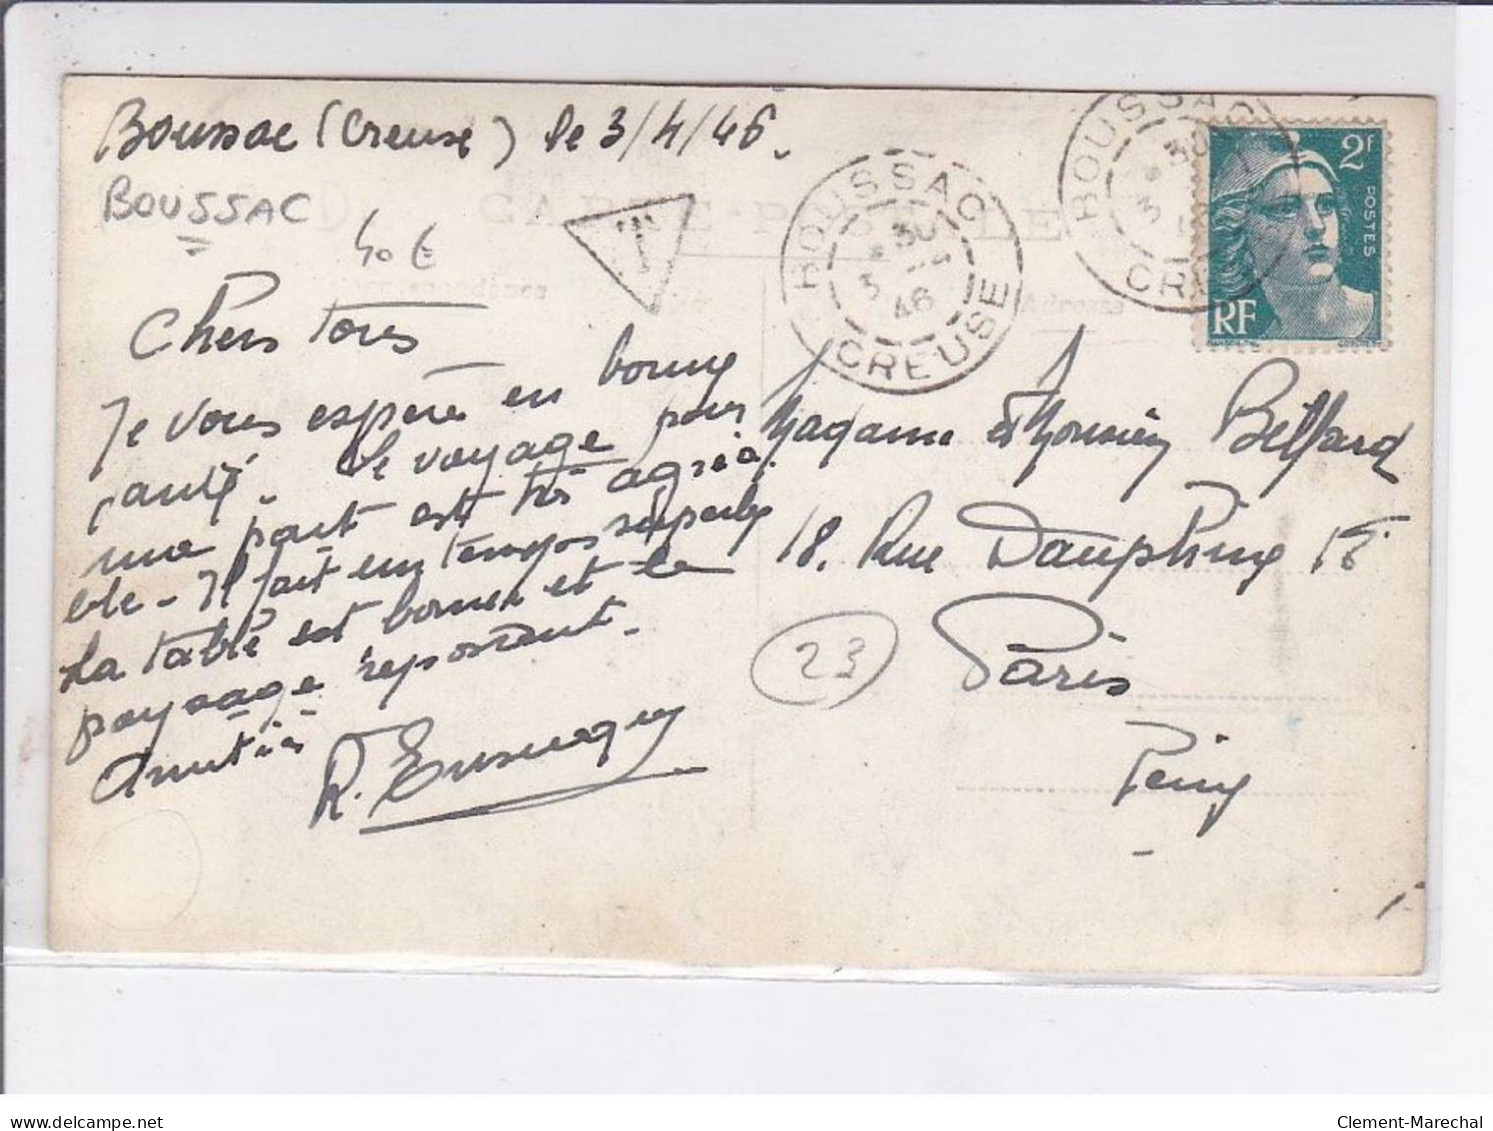 Boussac (Creuse) le 3/4/46.
BOUSSAC
40 €
CARTE POSTALE
Correspondance
Adresse
T
BOUSSAC
30
3
46
CREUSE
BOUSSAC
30
3
CREUSE
2F
POSTES
RF
Chers tous
Je vous espère en bonne
santé. Le voyage pour
ma part est très agréa
ble - Il fait un temps superbe
La table est bonne et le
paysage reposant.
Amitiés
R.
Madame & Monsieur Belfard
18. Rue Dauphine
Paris
23
delcampe.net
Clement-Marechal